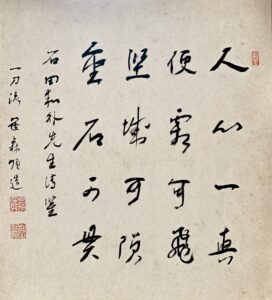 人心一真
便霜可飛
堅城可隕
金石可貫
石田和外先生清鑒
一刀流 笹森順造